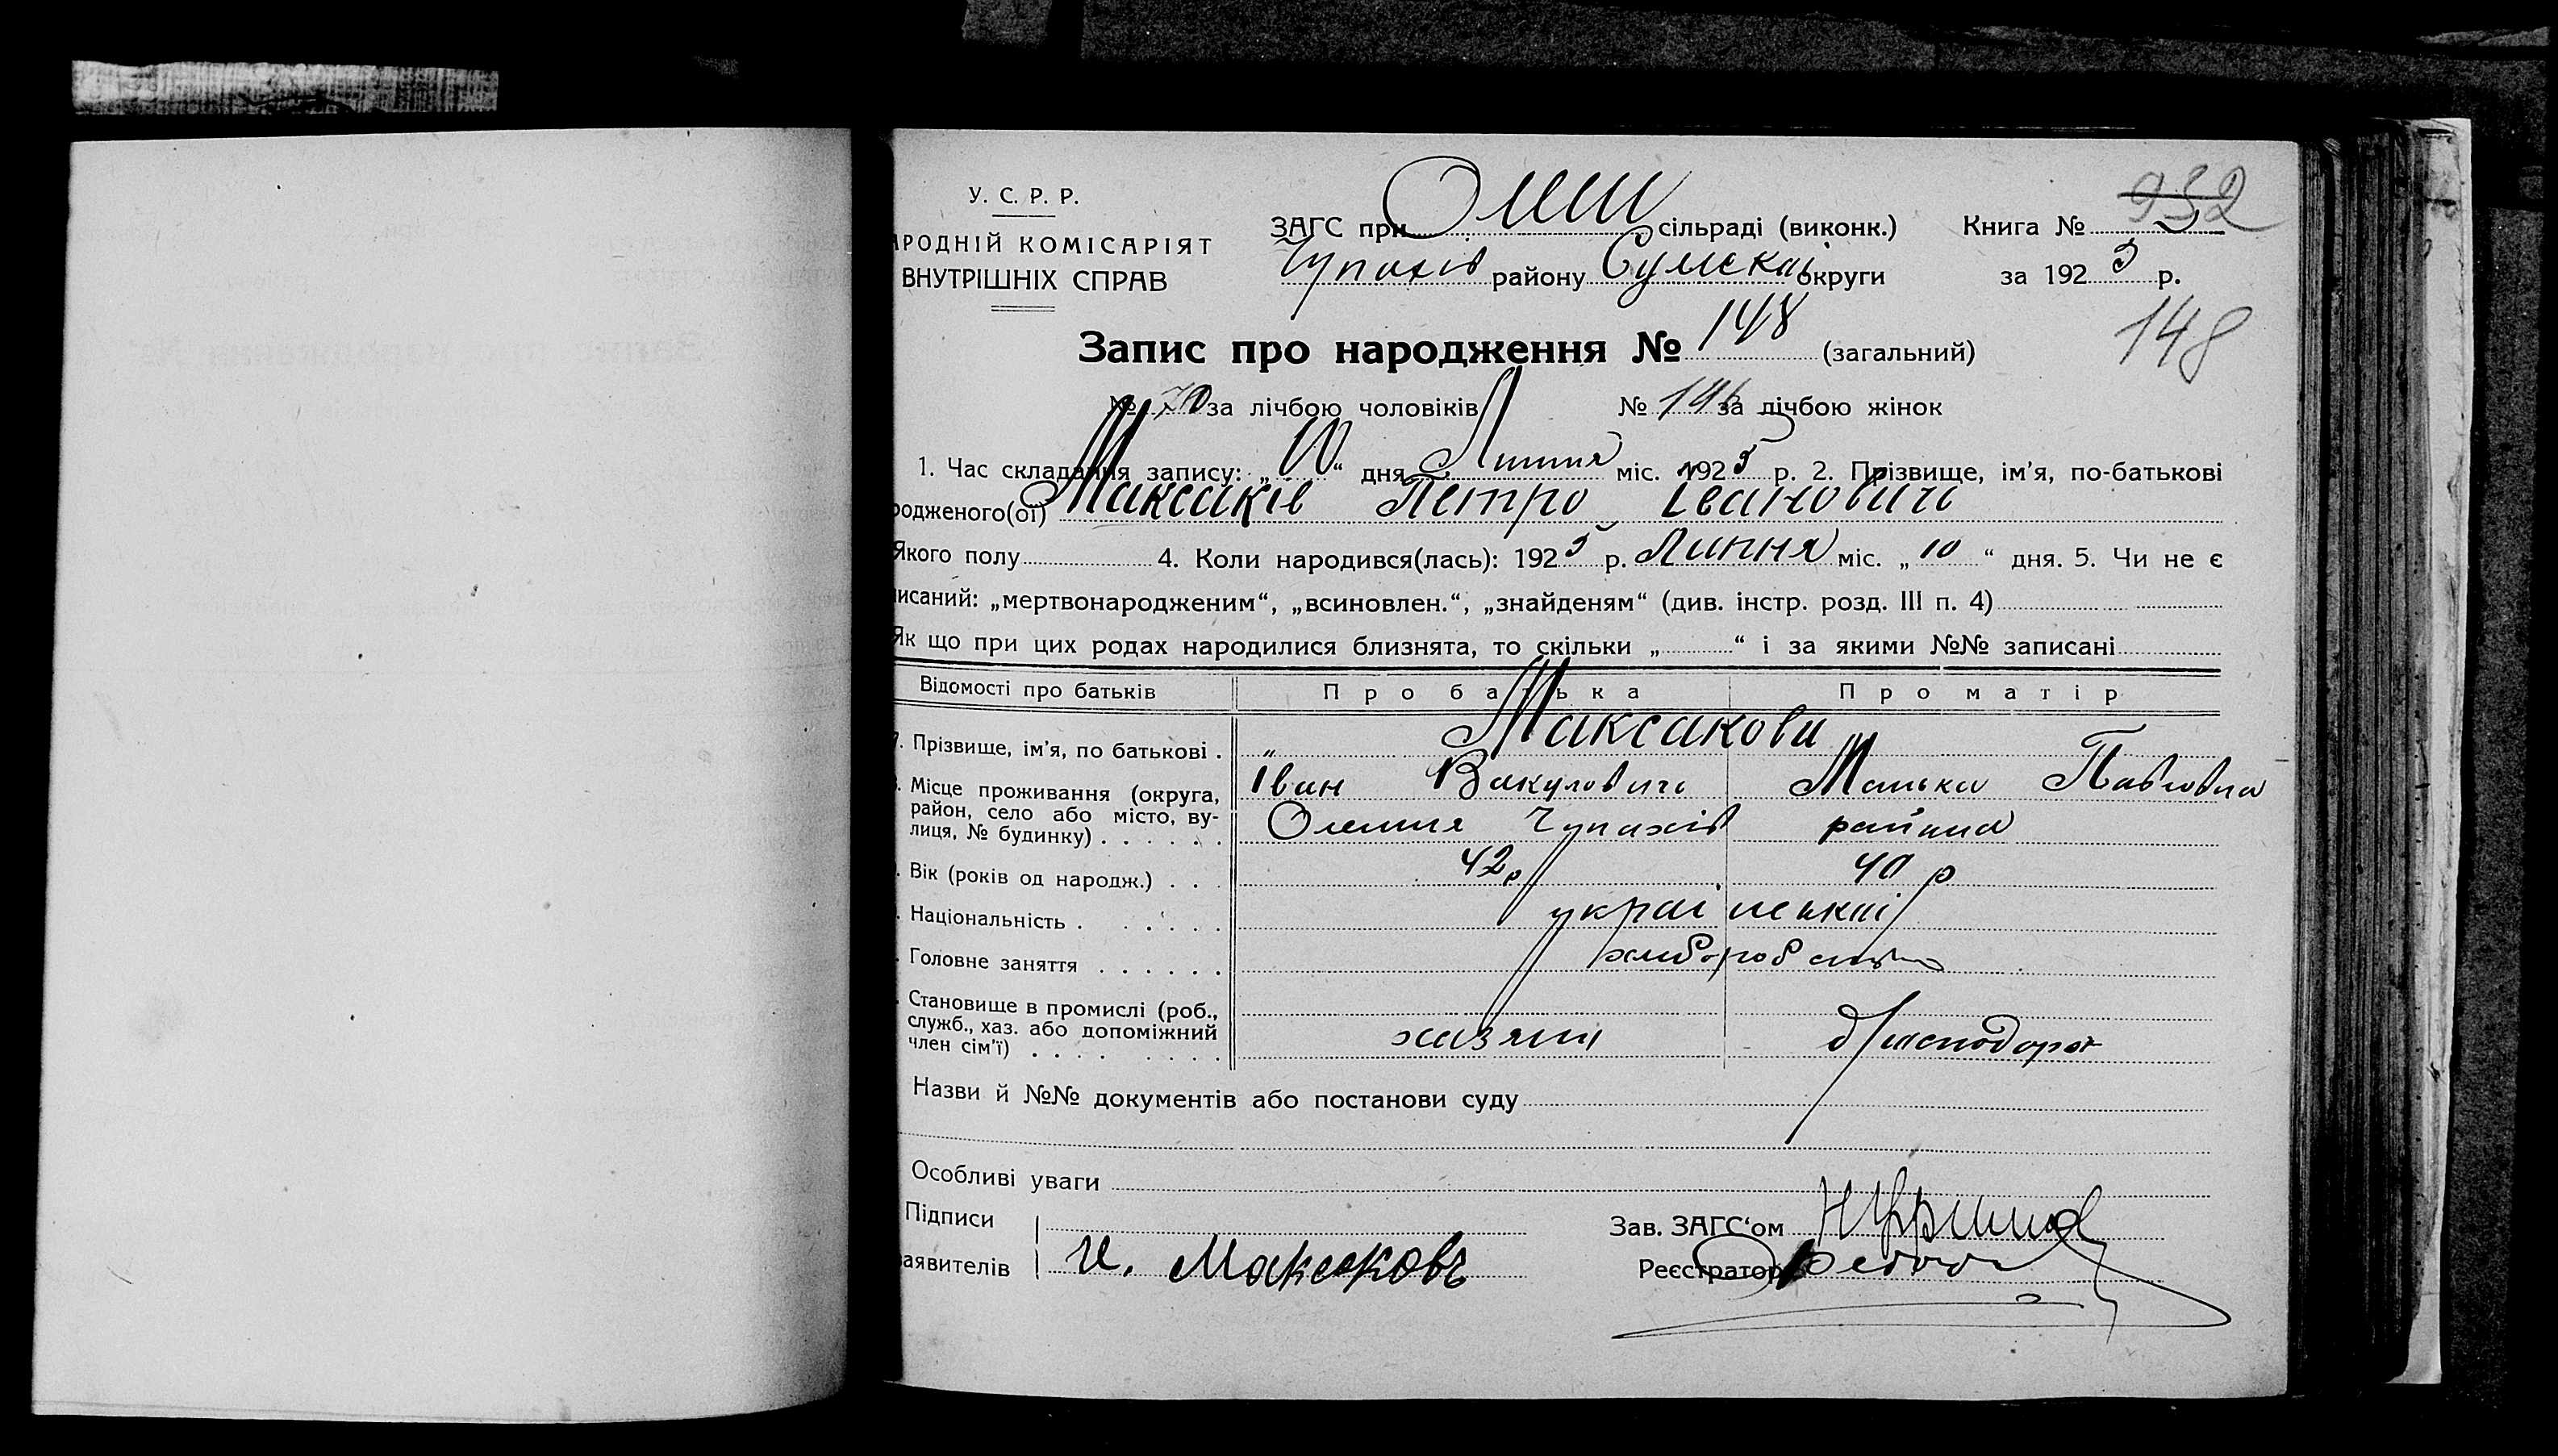 У. С. Р. Р.
АРОДНІЙ КОМІСАРІЯТ
ВНУТРІШНІХ СПРАВ
ЗАГС при сільраді (виконк.)
Чупахів району Сумської округи
Книга № 932
за 1925 р.
148
Запис про народження № 148 (загальний)
№ 70 за лічбою чоловіків № за лічбою жінок
1. Час складання запису: „ “ дня Липня міс. 1925 р. 2. Прізвище, ім'я, по-батькові
родженого(ої) Максаків Петро Іванович
Якого полу 4. Коли народився(лась): 1925 р. Липня міс. „ 10 “ дня. 5. Чи не є
писаний: „мертвонародженим“, „всиновлен.“, „знайденям“ (див. інстр. розд. III п. 4)
Як що при цих родах народилися близнята, то скільки „ “ і за якими №№ записані
Відомості про батьків Про батька Про матір
7. Прізвище, ім'я, по батькові . „ Максакови
Іван Вакулович Павловна
Місце проживання (округа,
район, село або місто, ву-
лиця, № будинку) . . . . . . Олешня Чупахів района
Вік (років од народж.) . . . 42 р 40 р
Національність . . . . . . українські
Головне заняття . . . . . . хліборобство
Становище в промислі (роб.,
служб., хаз. або допоміжний
член сім'ї) . . . . . . . . хазяін
Назви й №№ документів або постанови суду
Особливі уваги
Підписи
заявителів И. Максаковъ
Зав. ЗАГС'ом
Реєстратор